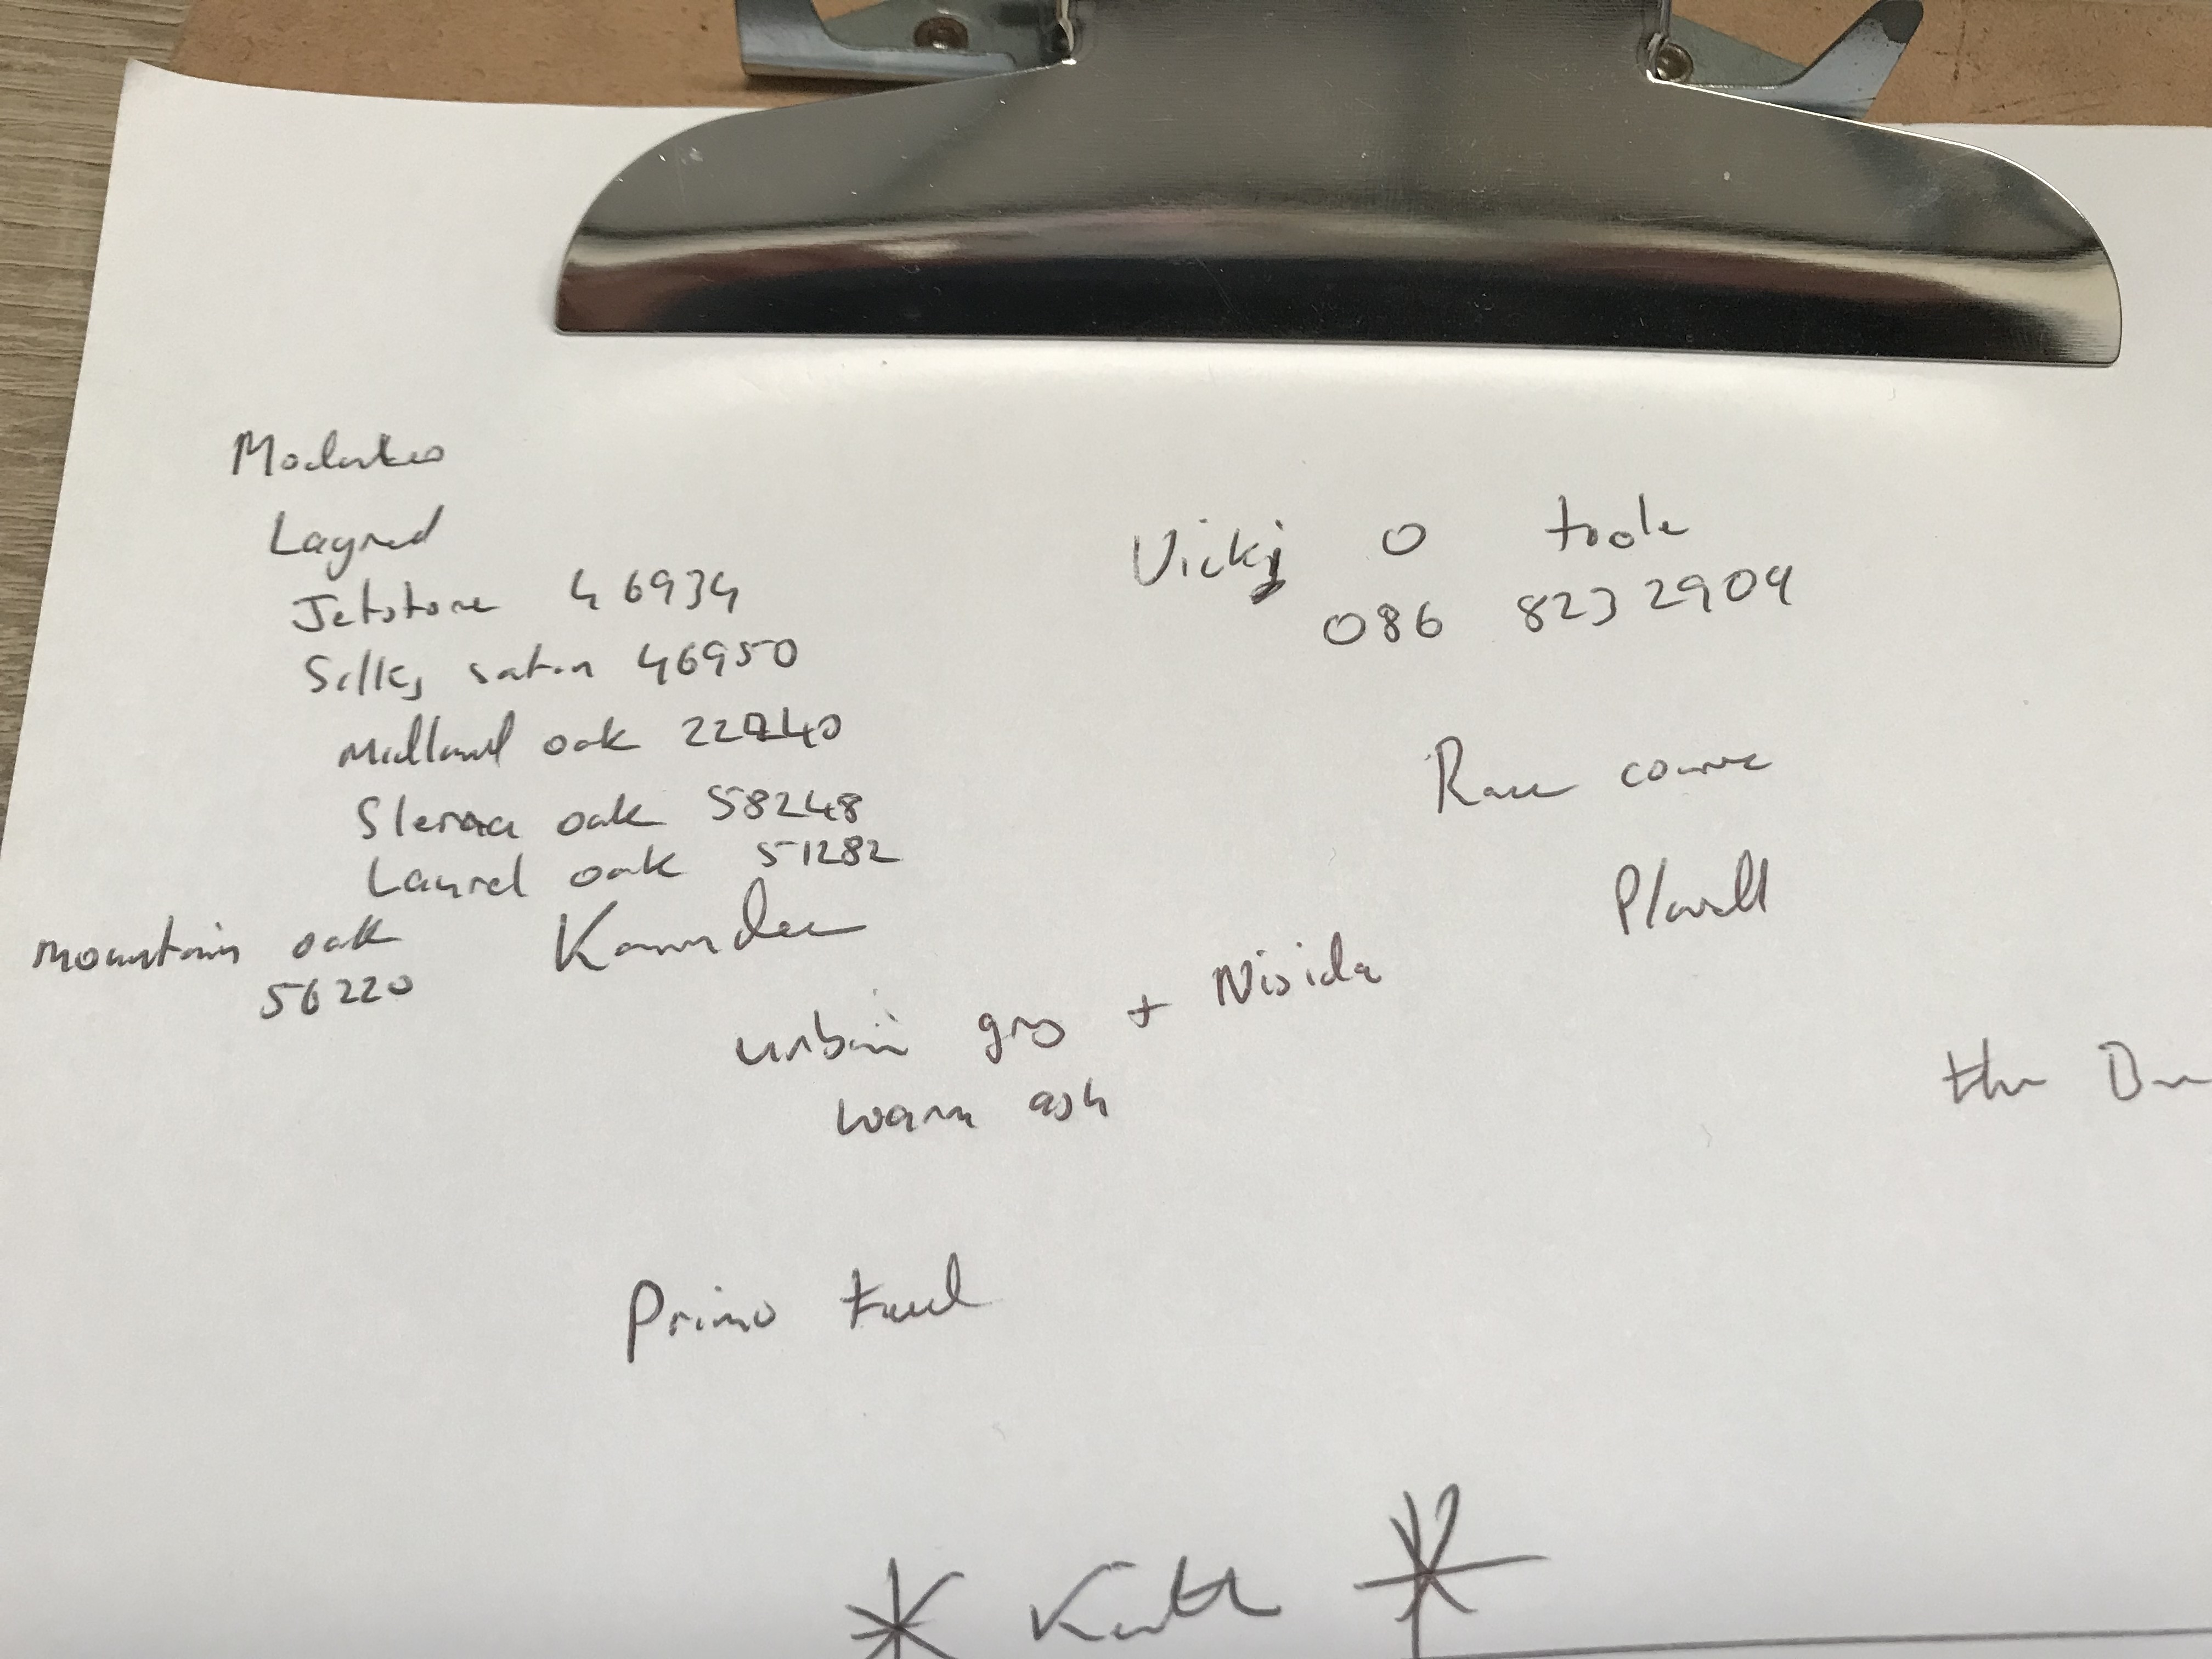 Moduleo
Layred
Jetstone 46934
Silky satin 46950
Midland oak 22240
Sierra oak 58248
Laurel oak 51282
Mountain oak
56220
Karndean
urban grey + Nisida
warm ash
Primo
* Keith *
Vicky O toole
086 823 2909
Race course
the